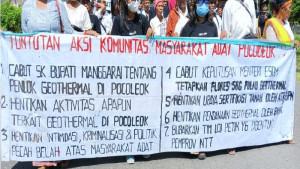 TUNTUTAN AKSI KOMUNITAS MASYARAKAT ADAT POCOLEOK
1 CABUT SK BUPATI MANGGARAI TENTANG
PENLOK GEOTHERMAL DI POCOLEOK
2 HENTIKAN AKTIVITAS APAPUN
TERKAIT GEOTHERMAL DI POCOLEOK
3 HENTIKAN INTIMIDASI, KRIMINALISASI & POLITIK
PECAH BELAH ATAS MASYARAKAT ADAT
4 CABUT KEPUTUSAN MENTERI ESDM
TETAPKAN FLORES SBG PULAU GEOTHERMAL
5 HENTIKAN UPAYA SERTIFIKASI TANAH OLEH
6 HENTIKAN OLEH BANK
7 BUBARKAN TIM
PEMPROV NTT